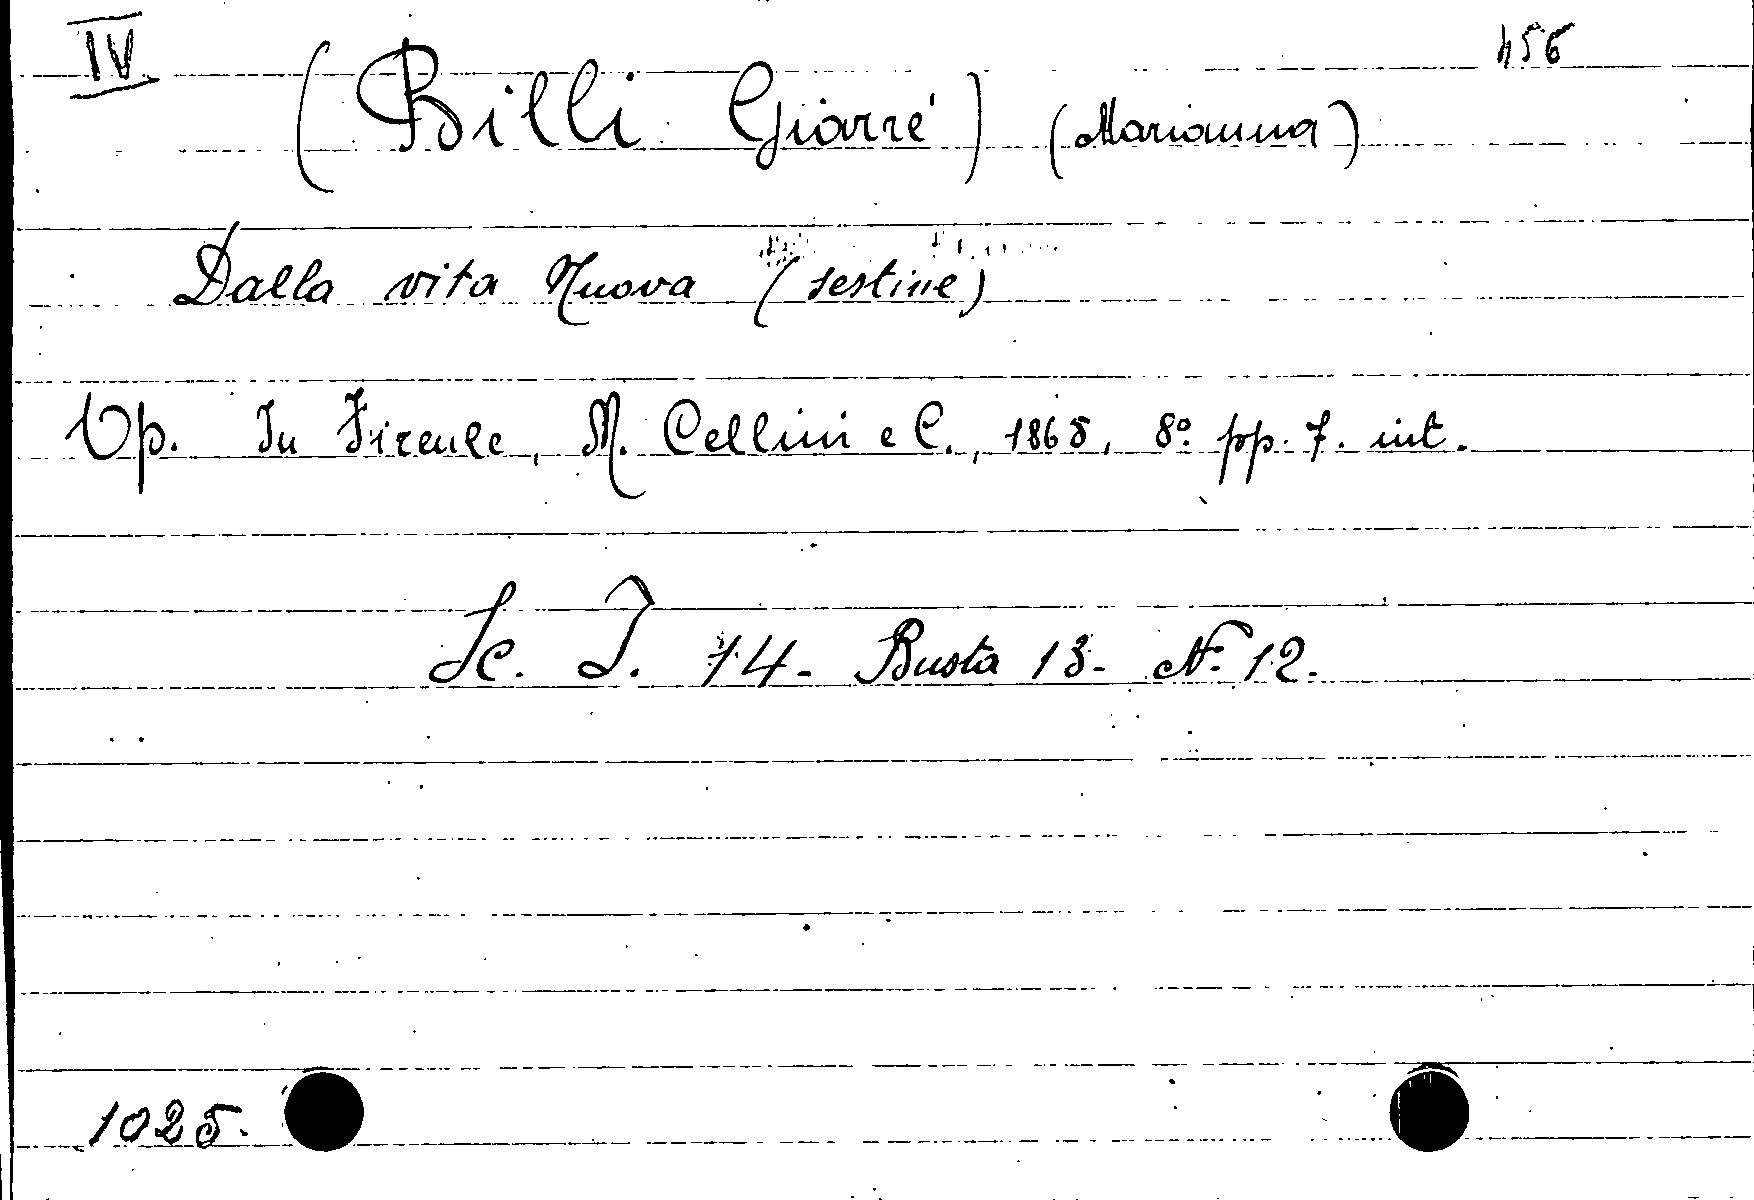 IV. 456
(Billi Giarré) (Marianna)
Dalla vita Nuova (sestine)
Op. In Firenze, M. Cellini e C., 1865, 8º pp. 7. int.
Sc. I. 14 - Busta 13 - N. 12.
1025.